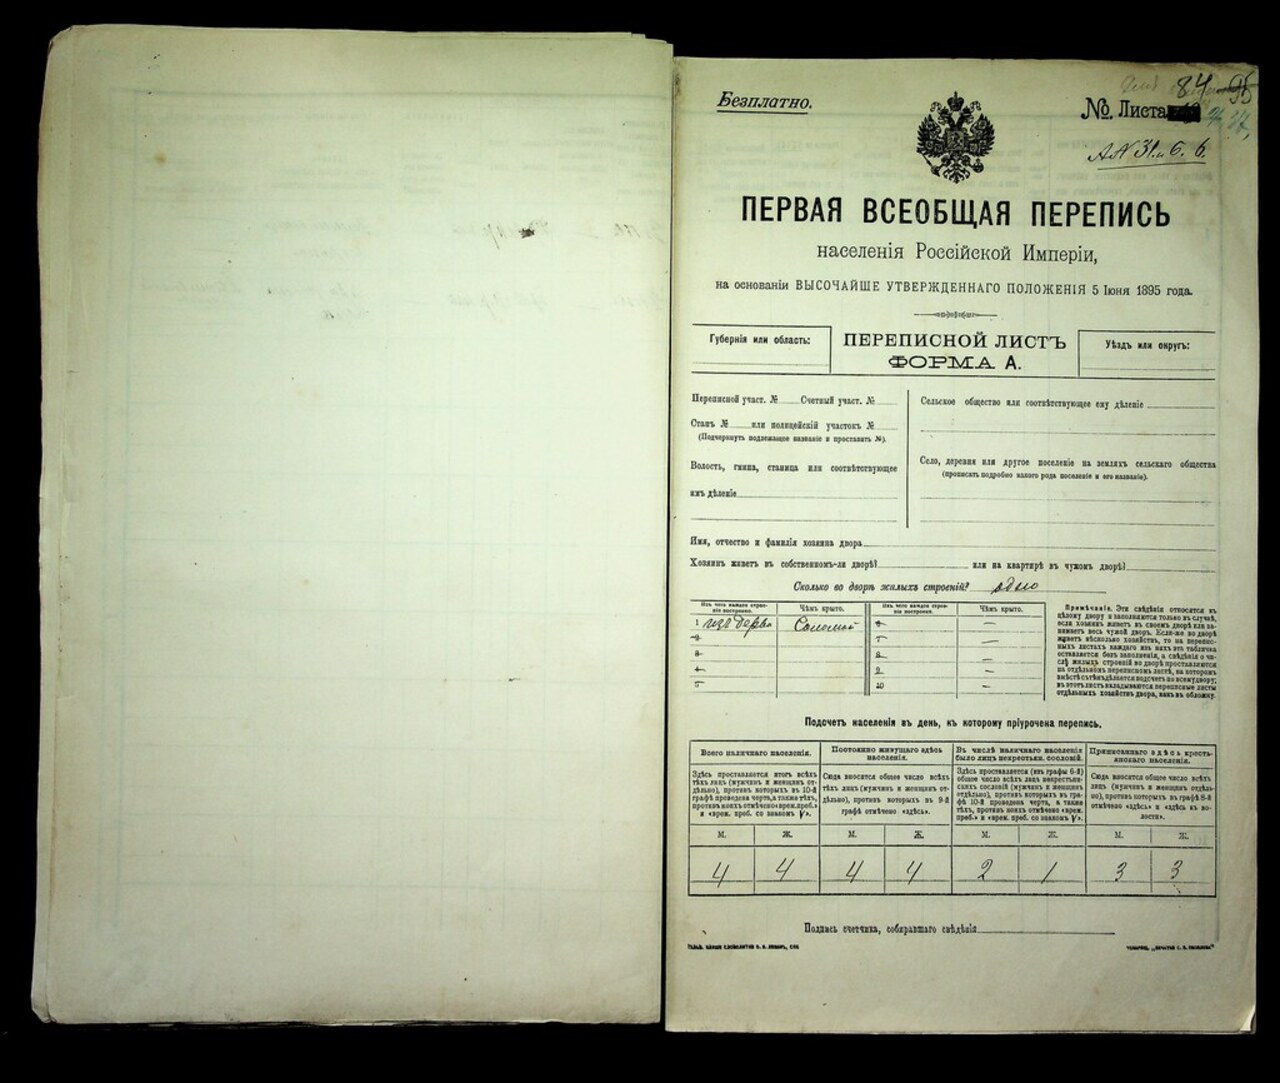 Безплатно.
84 95
№ Листа
АН 31 и 6. б.
ПЕРВАЯ ВСЕОБЩАЯ ПЕРЕПИСЬ
населенія Россійской Имперіи,
на основаніи ВЫСОЧАЙШЕ УТВЕРЖДЕННАГО ПОЛОЖЕНІЯ 5 Іюня 1895 года.
Губернія или область:
ПЕРЕПИСНОЙ ЛИСТЪ
ФОРМА А.
Уѣздъ или округъ:
Переписной участ. № Счетный участ. №
Станъ № или полицейскій участокъ №
(Подчеркнуть подлежащее названіе и проставить №).
Волость, гмина, станица или соотвѣтствующее
имъ дѣленіе
Сельское общество или соотвѣтствующее ему дѣленіе
Село, деревня или другое поселеніе на земляхъ сельскаго общества
(прописать подробно какого рода поселеніе и его названіе).
Имя, отчество и фамилія хозяина двора
Хозяинъ живетъ въ собственномъ-ли дворѣ? или на квартирѣ въ чужомъ дворѣ?
Сколько во дворѣ жилыхъ строеній? одно
Изъ чего каждое строе-
ніе построено.
Чѣмъ крыто.
Изъ чего каждое строе-
ніе построено.
Чѣмъ крыто.
1 изъ дерева Соломой
2
3
4
5
6 —
7 —
8 —
9 —
10 —
Примѣчаніе. Эти свѣдѣнія относятся къ
цѣлому двору и заполняются только въ случаѣ,
если хозяинъ живетъ въ своемъ дворѣ или за-
нимаетъ весь чужой дворъ. Если-же во дворѣ
живетъ нѣсколько хозяйствъ, то на перепис-
ныхъ листахъ каждаго изъ нихъ эта табличка
оставляется безъ заполненія, а свѣдѣнія о чи-
слѣ жилыхъ строеній во дворѣ проставляются
на отдѣльномъ переписномъ листѣ, на которомъ
вмѣстѣ съ тѣмъ дѣлается подсчетъ по всему двору;
въ этотъ листъ вкладываются переписные листы
отдѣльныхъ хозяйствъ двора, какъ въ обложку.
Подсчетъ населенія въ день, къ которому пріурочена перепись.
Всего наличнаго населенія.
Здѣсь проставляется итогъ всѣхъ
тѣхъ лицъ (мужчинъ и женщинъ от-
дѣльно), противъ которыхъ въ 10-й
графѣ проведена черта, а также тѣхъ,
противъ коихъ отмѣчено «врем. преб.»
и «врем. преб. со знакомъ V».
Постоянно живущаго здѣсь
населенія.
Сюда вносится общее число всѣхъ
тѣхъ лицъ (мужчинъ и женщинъ от-
дѣльно), противъ которыхъ въ 9-й
графѣ отмѣчено «здѣсь».
Въ числѣ наличнаго населенія
было лицъ некрестьян. сословій.
Здѣсь проставляется (изъ графы 6-й)
общее число всѣхъ лицъ некрестьян-
скихъ сословій (мужчинъ и женщинъ
отдѣльно), противъ которыхъ въ гра-
фѣ 10-й проведена черта, а также
тѣхъ, противъ коихъ отмѣчено «врем.
преб.» и «врем. преб. со знакомъ V».
Приписаннаго здѣсь кресть-
янскаго населенія.
Сюда вносится общее число всѣхъ
лицъ (мужчинъ и женщинъ отдѣль-
но), противъ которыхъ въ графѣ 8-й
отмѣчено «здѣсь» и «здѣсь въ во-
лости».
М. Ж. М. Ж. М. Ж. М. Ж.
4 4 4 4 2 1 3 3
Подпись счетчика, собиравшаго свѣдѣнія